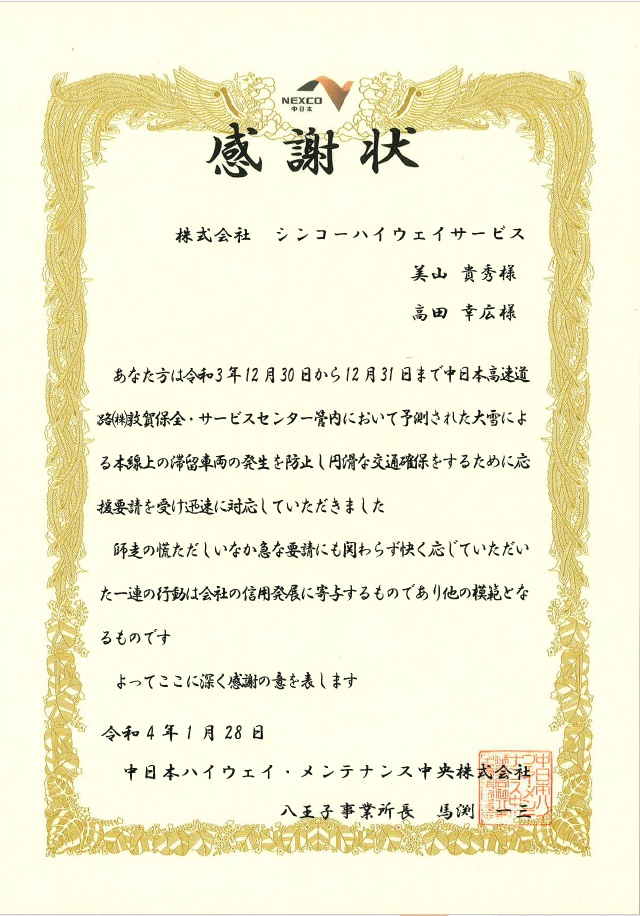 NEXCO
中日本
感謝状
株式会社　シンコーハイウェイサービス
美山 貴秀様
高田 幸広様
あなた方は令和3年12月30日から12月31日まで中日本高速道
路㈱敦賀保全・サービスセンター管内において予測された大雪によ
る本線上の滞留車両の発生を防止し円滑な交通確保をするために応
援要請を受け迅速に対応していただきました
師走の慌ただしいなか急な要請にも関わらず快く応じていただい
た一連の行動は会社の信用発展に寄与するものであり他の模範とな
るものです
よってここに深く感謝の意を表します
令和4年1月28日
中日本ハイウェイ・メンテナンス中央株式会社
八王子事業所長　馬渕　一三